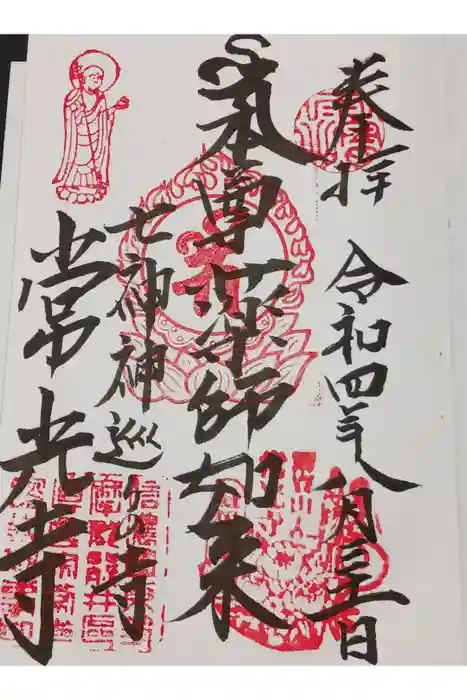 奉拝 令和四年八月三十一日
本尊薬師如来
七福神巡りの寺
常光寺